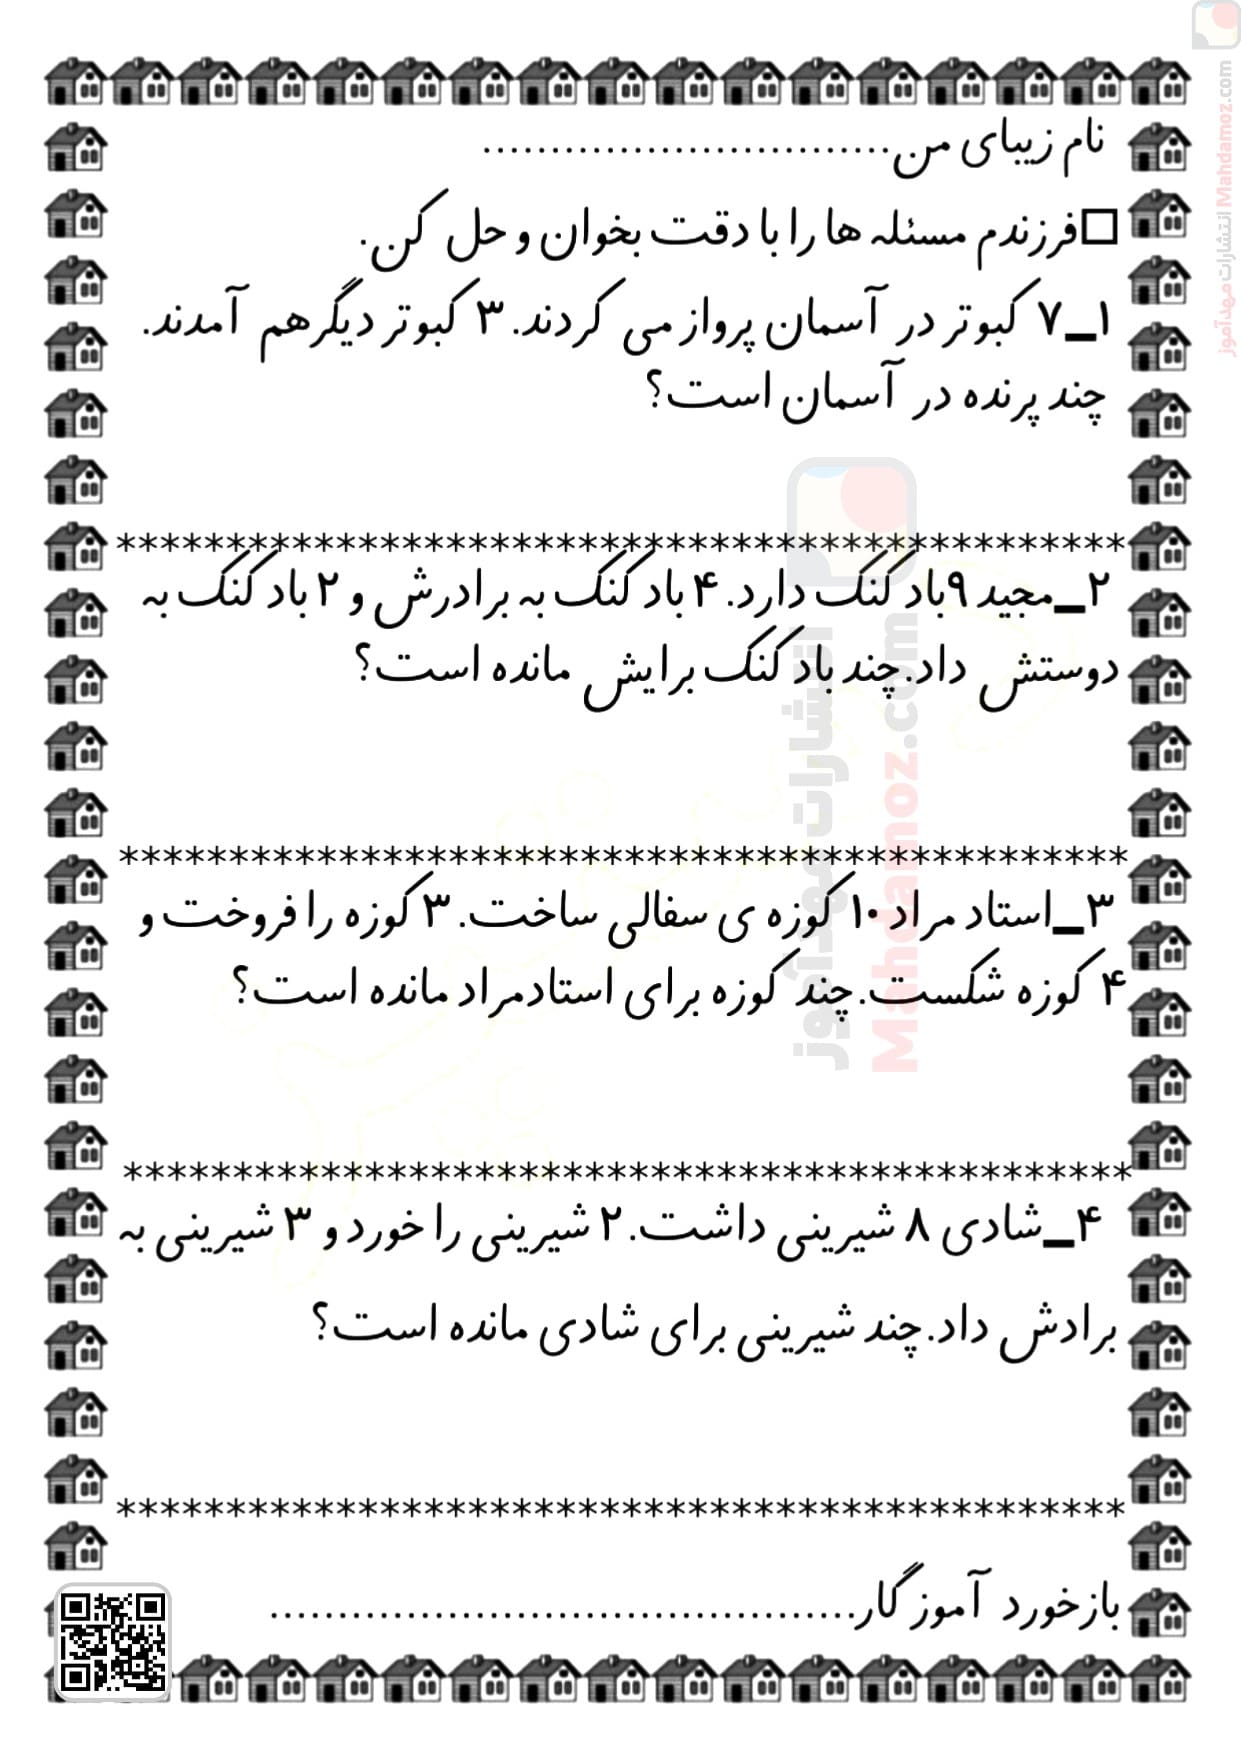 نام زیبای من..............................
□فرزندم مسئله ها را با دقت بخوان و حل کن.
۱_۷ کبوتر در آسمان پرواز می کردند. ۳ کبوتر دیگر هم آمدند.
چند پرنده در آسمان است؟
**********************************************
۲_مجید ۹بادکنک دارد. ۴ بادکنک به برادرش و ۲ بادکنک به
دوستش داد.چند بادکنک برایش مانده است؟
**********************************************
۳_استاد مراد ۱۰ کوزه ی سفالی ساخت. ۳ کوزه را فروخت و
۴ کوزه شکست.چند کوزه برای استادمراد مانده است؟
**********************************************
۴_شادی ۸ شیرینی داشت. ۲ شیرینی را خورد و ۳ شیرینی به
برادش داد.چند شیرینی برای شادی مانده است؟
**********************************************
بازخورد آموزگار...........................................
انتشارات مهدآموز
Mahdamoz.com
انتشارات مهدآموز Mahdamoz.com